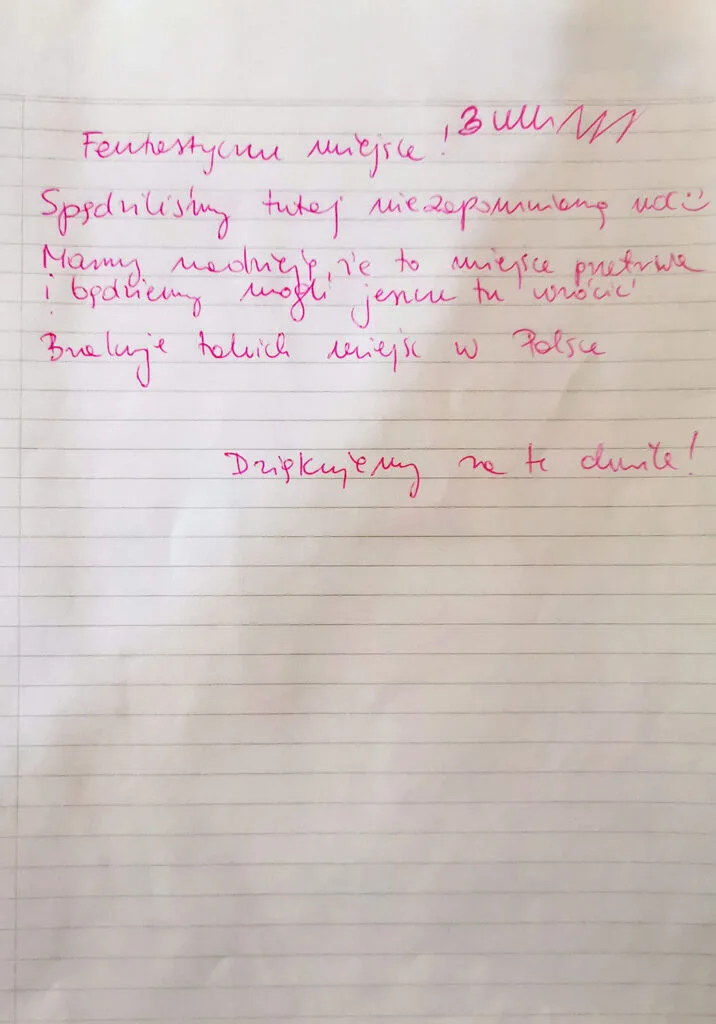 Fantastyczne miejsce!
Spędziliśmy tutaj niezapomnianą noc :)
Mamy nadzieję, że to miejsce przetrwa
i będziemy mogli jeszcze tu wrócić
Brakuje takich miejsc w Polsce
Dziękujemy za te chwile!